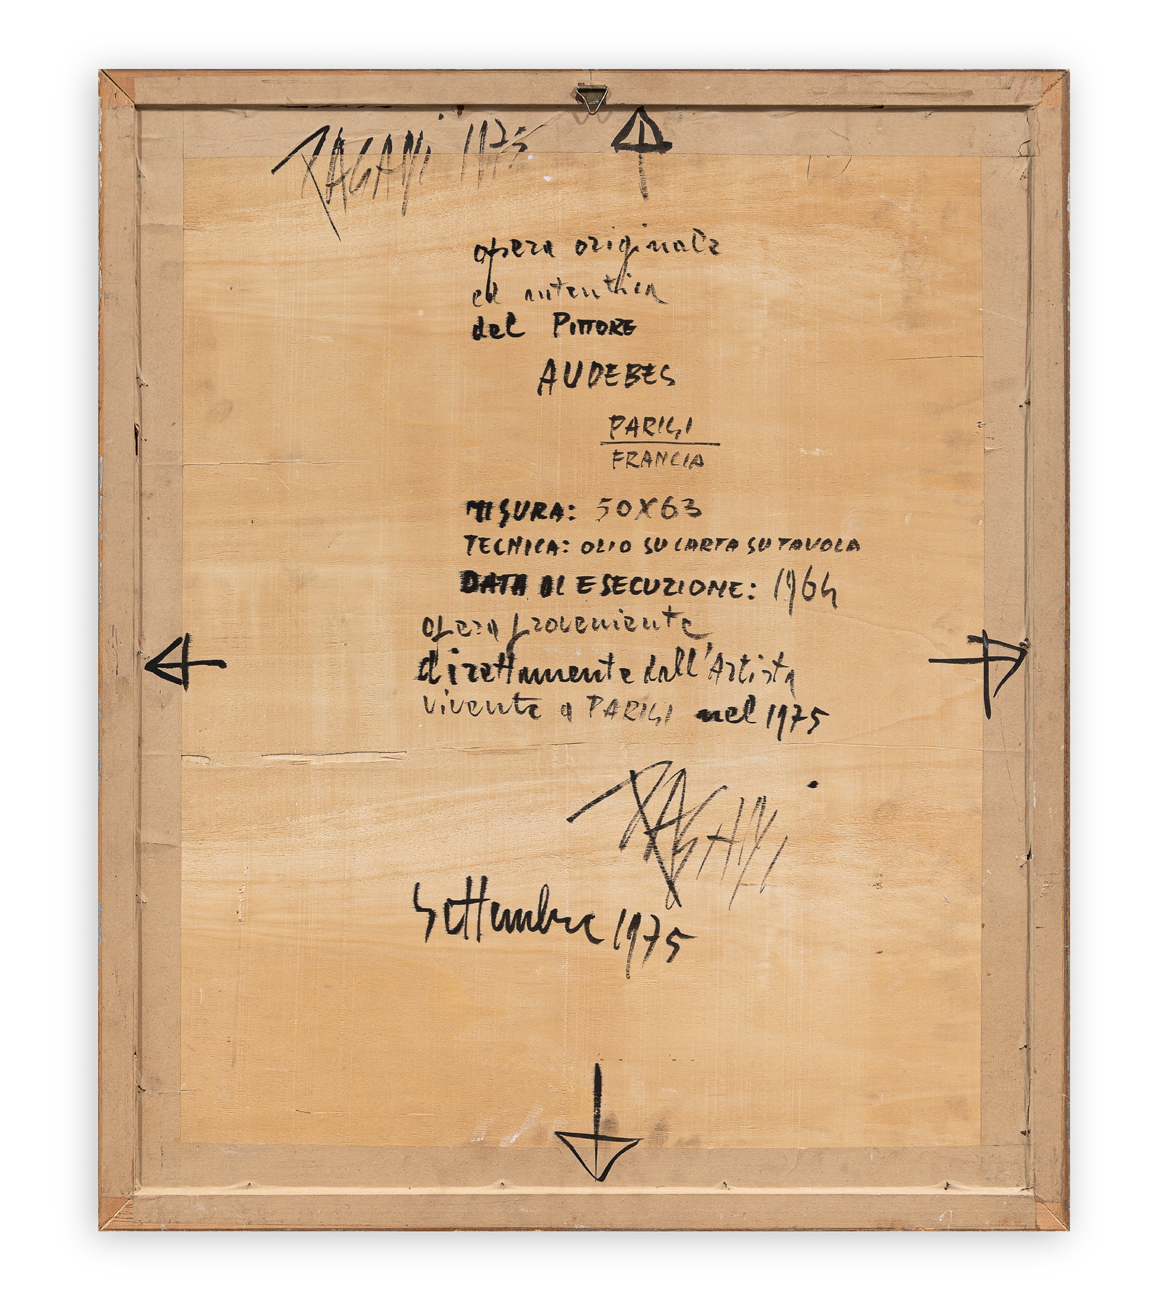 PAGANi 1975
opera originale
ed autentica
del PITTORE
AUDEBES
PARIGI
FRANCIA
MISURA: 50X63
TECNICA: OLIO SU CARTA SU TAVOLA
DATA DI ESECUZIONE: 1964
opera proveniente
direttamente dall'Artista
vivente a PARIGI nel 1975
PAGANi
Settembre 1975